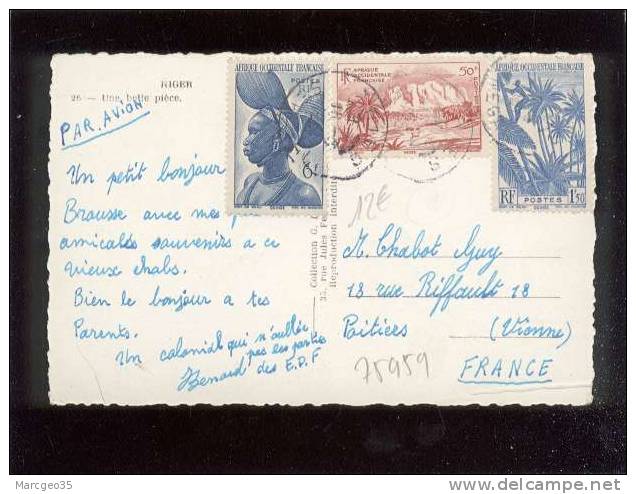 NIGER
26 — Une belle pièce.
PAR AVION
Un petit bonjour
Brousse avec mes
amicales souvenirs a ce
vieux chabs.
Bien le bonjour a tes
Parents.
Un colonial qui n'oublie
pas les parties
des E.P.F
Benard
Collection G.
35, rue Jules Fe
Reproduction Interdite
AFRIQUE OCCIDENTALE FRANÇAISE
POSTES
RF
6F
50F
AFRIQUE
OCCIDENTALE
FRANÇAISE
AFRIQUE OCCIDENTALE FRANÇAISE
RF POSTES 1F50
12€
M. Chabot Guy
18 rue Riffault 18
Poitiers (Vienne)
FRANCE
75959
Marcgeo35
www.delcampe.net